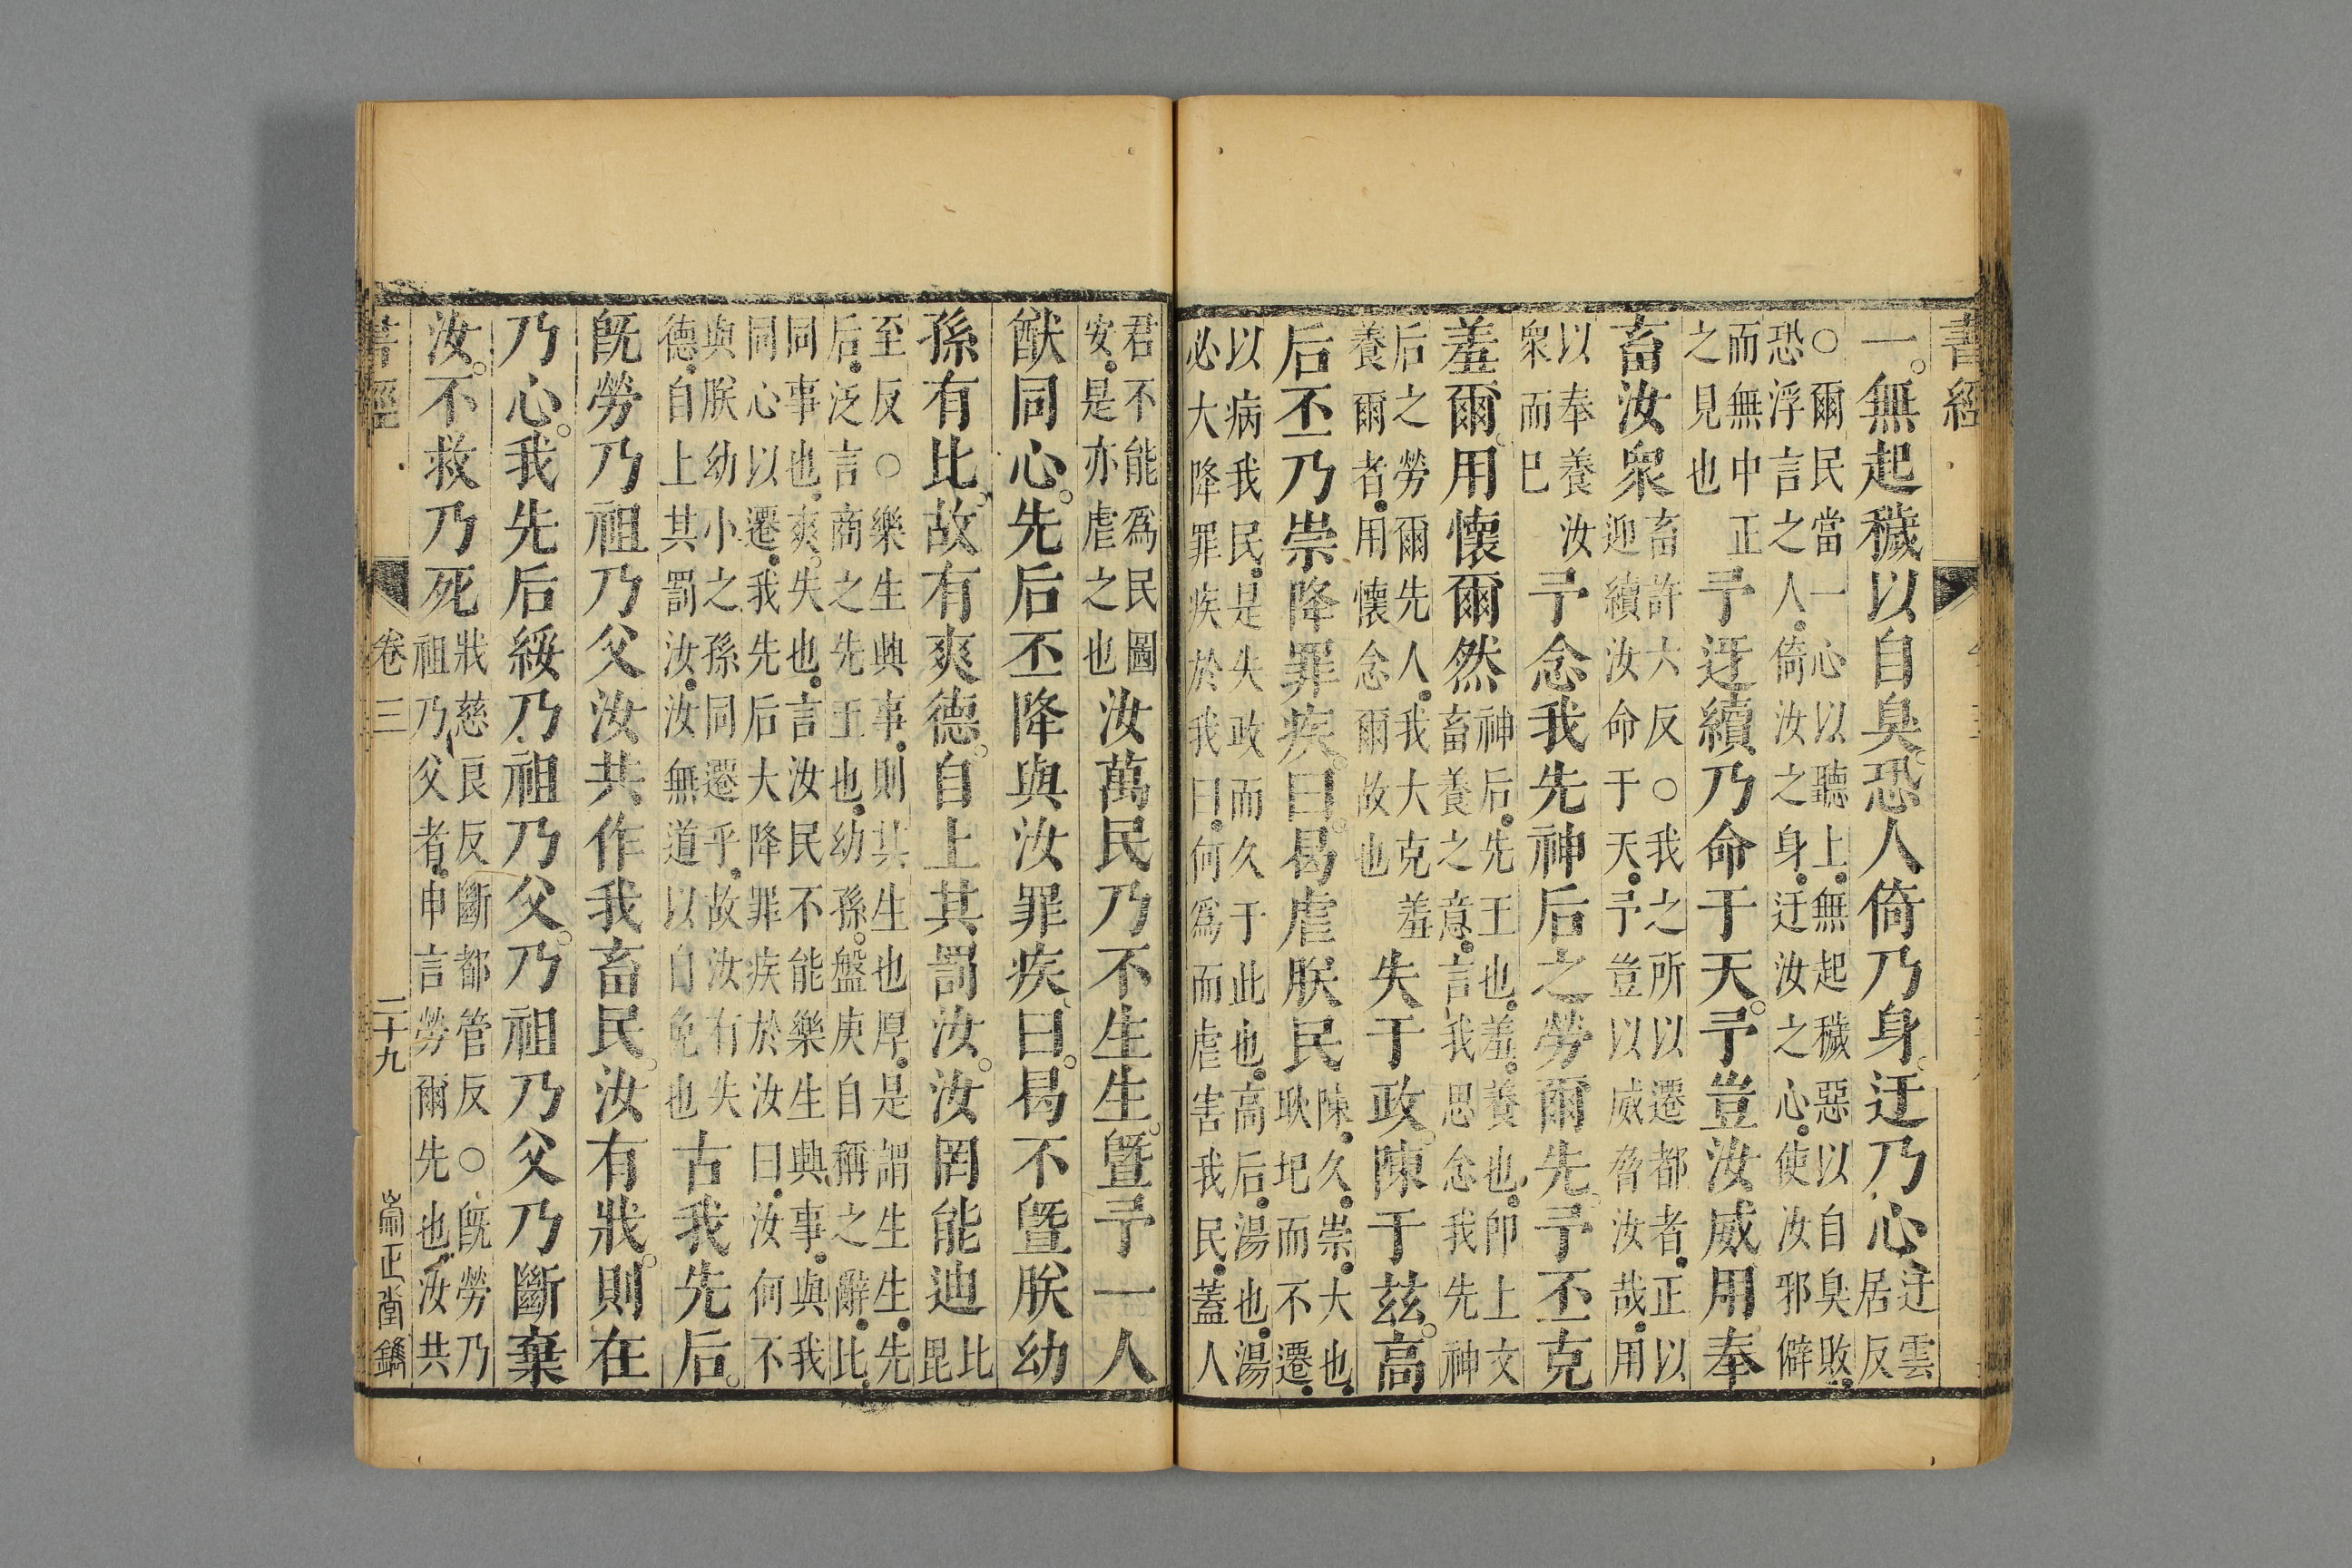 書經
一。無起穢以自臭。恐人倚乃身。迂乃心。迂雲
居反
○爾民當一心以聽上。無起穢惡以自臭敗。
恐浮言之人。倚汝之身。迂汝之心。使汝邪僻
而無中正
之見也
予迓續乃命于天。予豈汝威。用奉
畜汝衆
畜許六反○我之所以遷都者。正以
迎續汝命于天。予豈以威脅汝哉。用
以奉養汝
衆而已
予念我先神后之勞爾先。予丕克
羞爾。用懷爾然
神后。先王也。羞。養也。卽上文
畜養之意。言我思念我先神
后之勞爾先人。我大克羞
養爾者。用懷念爾故也
失于政。陳于茲。高
后丕乃崇降罪疾。曰。曷虐朕民
陳。久。崇。大也。
耿圯而不遷。
以病我民。是失政而久于此也。高后。湯也。湯
必大降罪疾於我。曰。何爲而虐害我民。蓋人
君不能爲民圖
安。是亦虐之也
汝萬民乃不生生。曁予一人
猷同心。先后丕降與汝罪疾。曰。曷不曁朕幼
孫有比。故有爽德。自上其罰汝。汝罔能迪
比
毘
至反○樂生興事。則其生也厚。是謂生生。先
后。泛言商之先王也。幼孫。盤庚自稱之辭。比。
同事也。爽。失也。言汝民不能樂生興事。與我
同心以遷。我先后大降罪疾於汝。曰。汝何不
與朕幼小之孫同遷乎。故汝有失
德。自上其罰汝。汝無道以自免也
古我先后。
旣勞乃祖乃父。汝共作我畜民。汝有戕。則在
乃心。我先后綏乃祖乃父。乃祖乃父乃斷棄
汝。不救乃死
戕慈良反斷都管反○旣勞乃
祖乃父者。申言勞爾先也。汝共
書經 卷三 二十九 崇正堂鐫